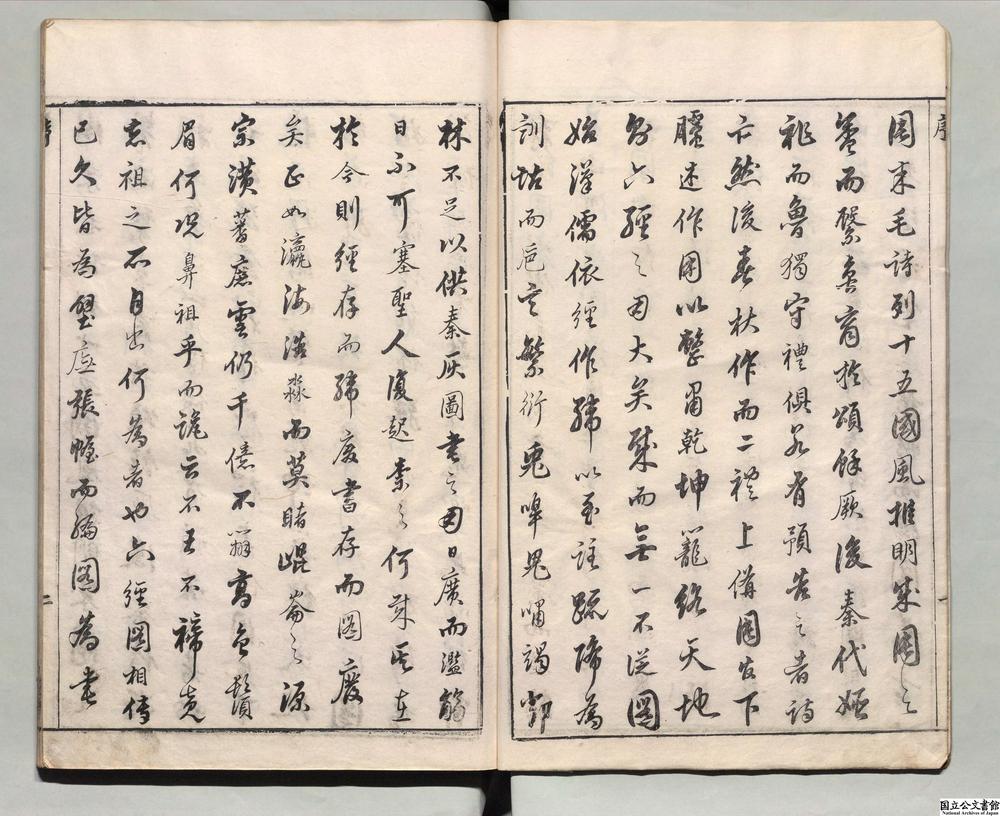 序
圖末毛詩列十五國風推明成周之
盛而繫魯商於頌餘厥後秦代姬
祚而魯獨守禮俱若有預告之者詩
亡然後春秋作而二禮上備國家下
臚述作圖以整肅乾坤籠絡天地
為六經之用大矣哉而無一不從圖
始漢儒依經作緯以至註疏降為
訓詁而卮言繁衍兎嘷鬼嘯竭鄧
一
林不足以供秦灰圖書之用日廣而濫觴
日不可塞聖人復起柰之何哉其在
於今則經存而緯廢書存而圖廢
矣正如瀛海浩淼而莫睹崐崙之源
宗潢蕃庶雲仍千億不辨高曾鬚
眉何况鼻祖乎而詭云不王不禘克
忘祖之所自出何為者也六經圖相傳
已久皆為壁庋張幄而編圖為書
序
二
國立公文書館
National Archives of Japan